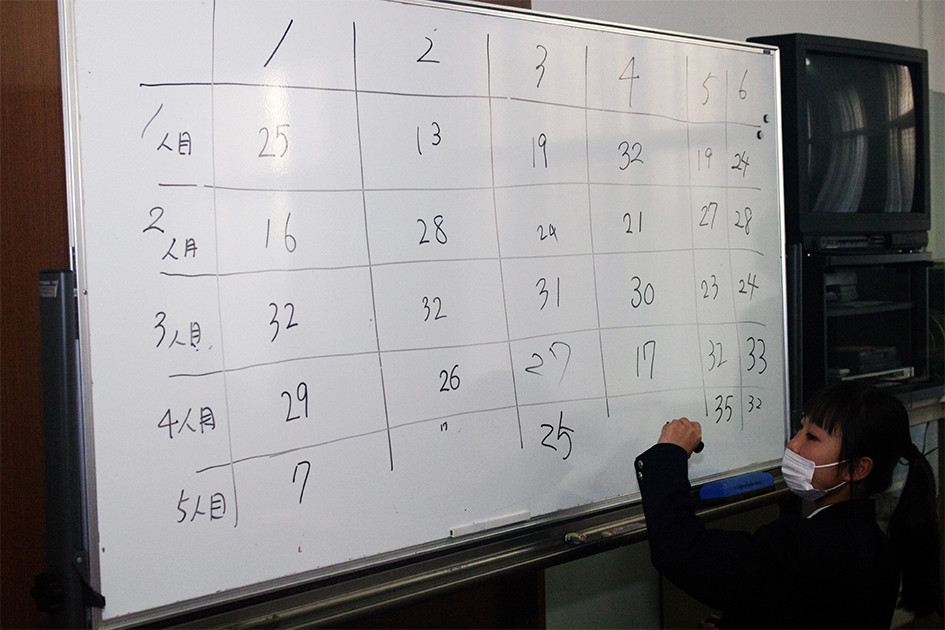 1 2 3 4 5 6
1人目 25 13 19 32 19 24
2人目 16 28 24 21 27 28
3人目 32 32 31 30 23 24
4人目 29 26 27 17 32 33
5人目 7 25 35 32